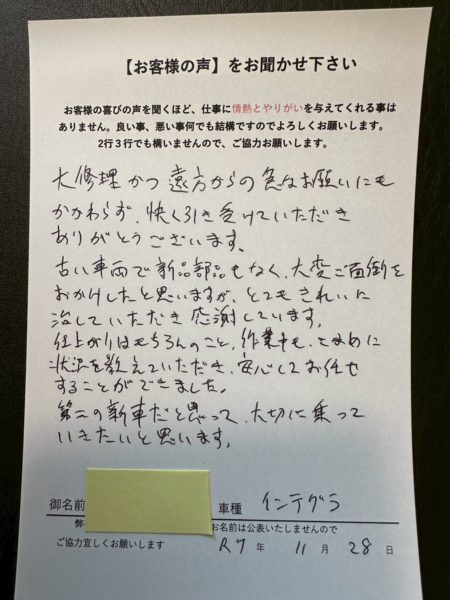 【お客様の声】をお聞かせ下さい
お客様の喜びの声を聞くほど、仕事に情熱とやりがいを与えてくれる事は
ありません。良い事、悪い事何でも結構ですのでよろしくお願いします。
2行3行でも構いませんので、ご協力お願いします。
大修理かつ遠方からの急なお願いにも
かかわらず、快く引き受けていただき
ありがとうございます。
古い車両で新品部品もなく、大変ご面倒を
おかけしたと思いますが、とてもきれいに
治していただき感謝しています。
仕上がりはもちろんのこと、作業中も、こまめに
状況を教えていただき、安心してお任せ
することができました。
第二の新車だと思って、大切に乗って
いきたいと思います。
御名前 車種 インテグラ
弊 お名前は公表いたしませんので
ご協力宜しくお願いします R7年 11月 28日